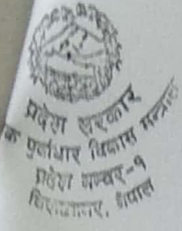 प्रदेश सरकार
क पूर्वाधार विकास मन्त्राल
प्रदेश नम्बर-१
विराटनगर, नेपाल